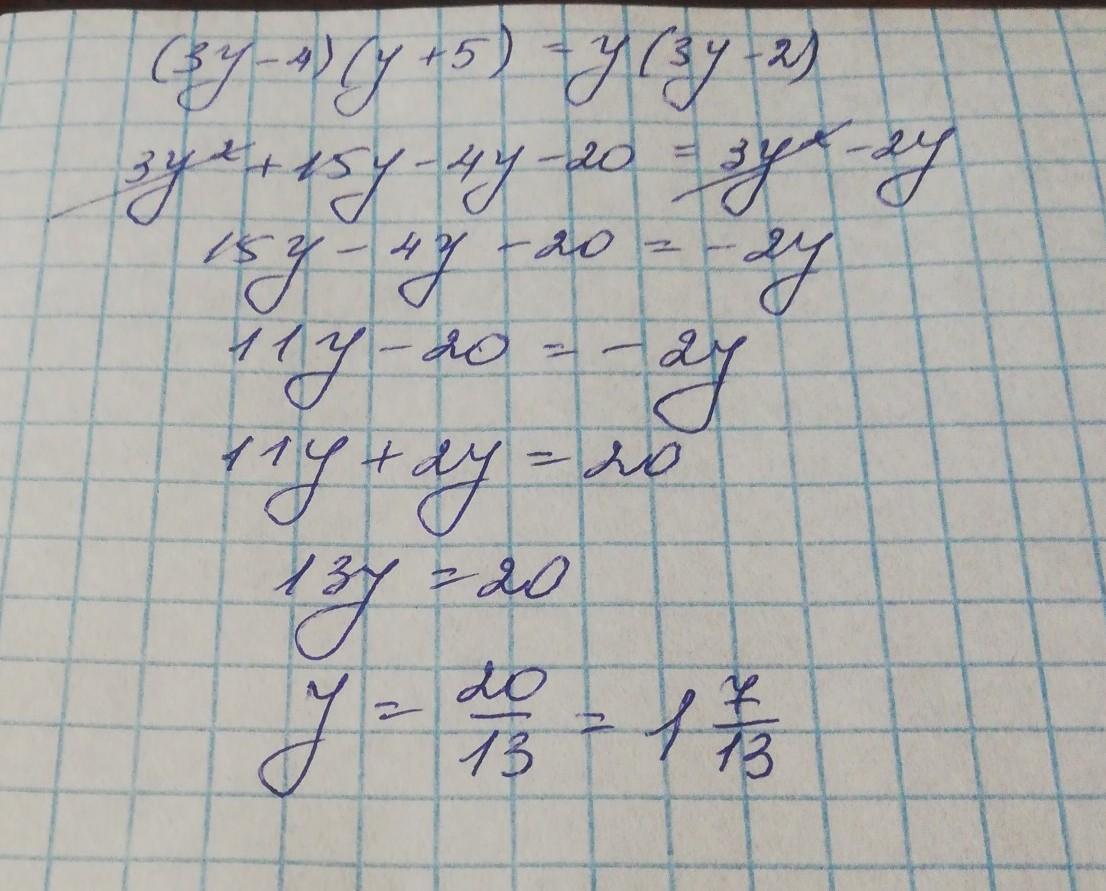 (3y-4)(y+5) = y(3y-2)
3y²+15y-4y-20 = 3y²-2y
15y-4y-20=-2y
11y-20=-2y
11y+2y=20
13y=20
y = 20/13 = 1 7/13